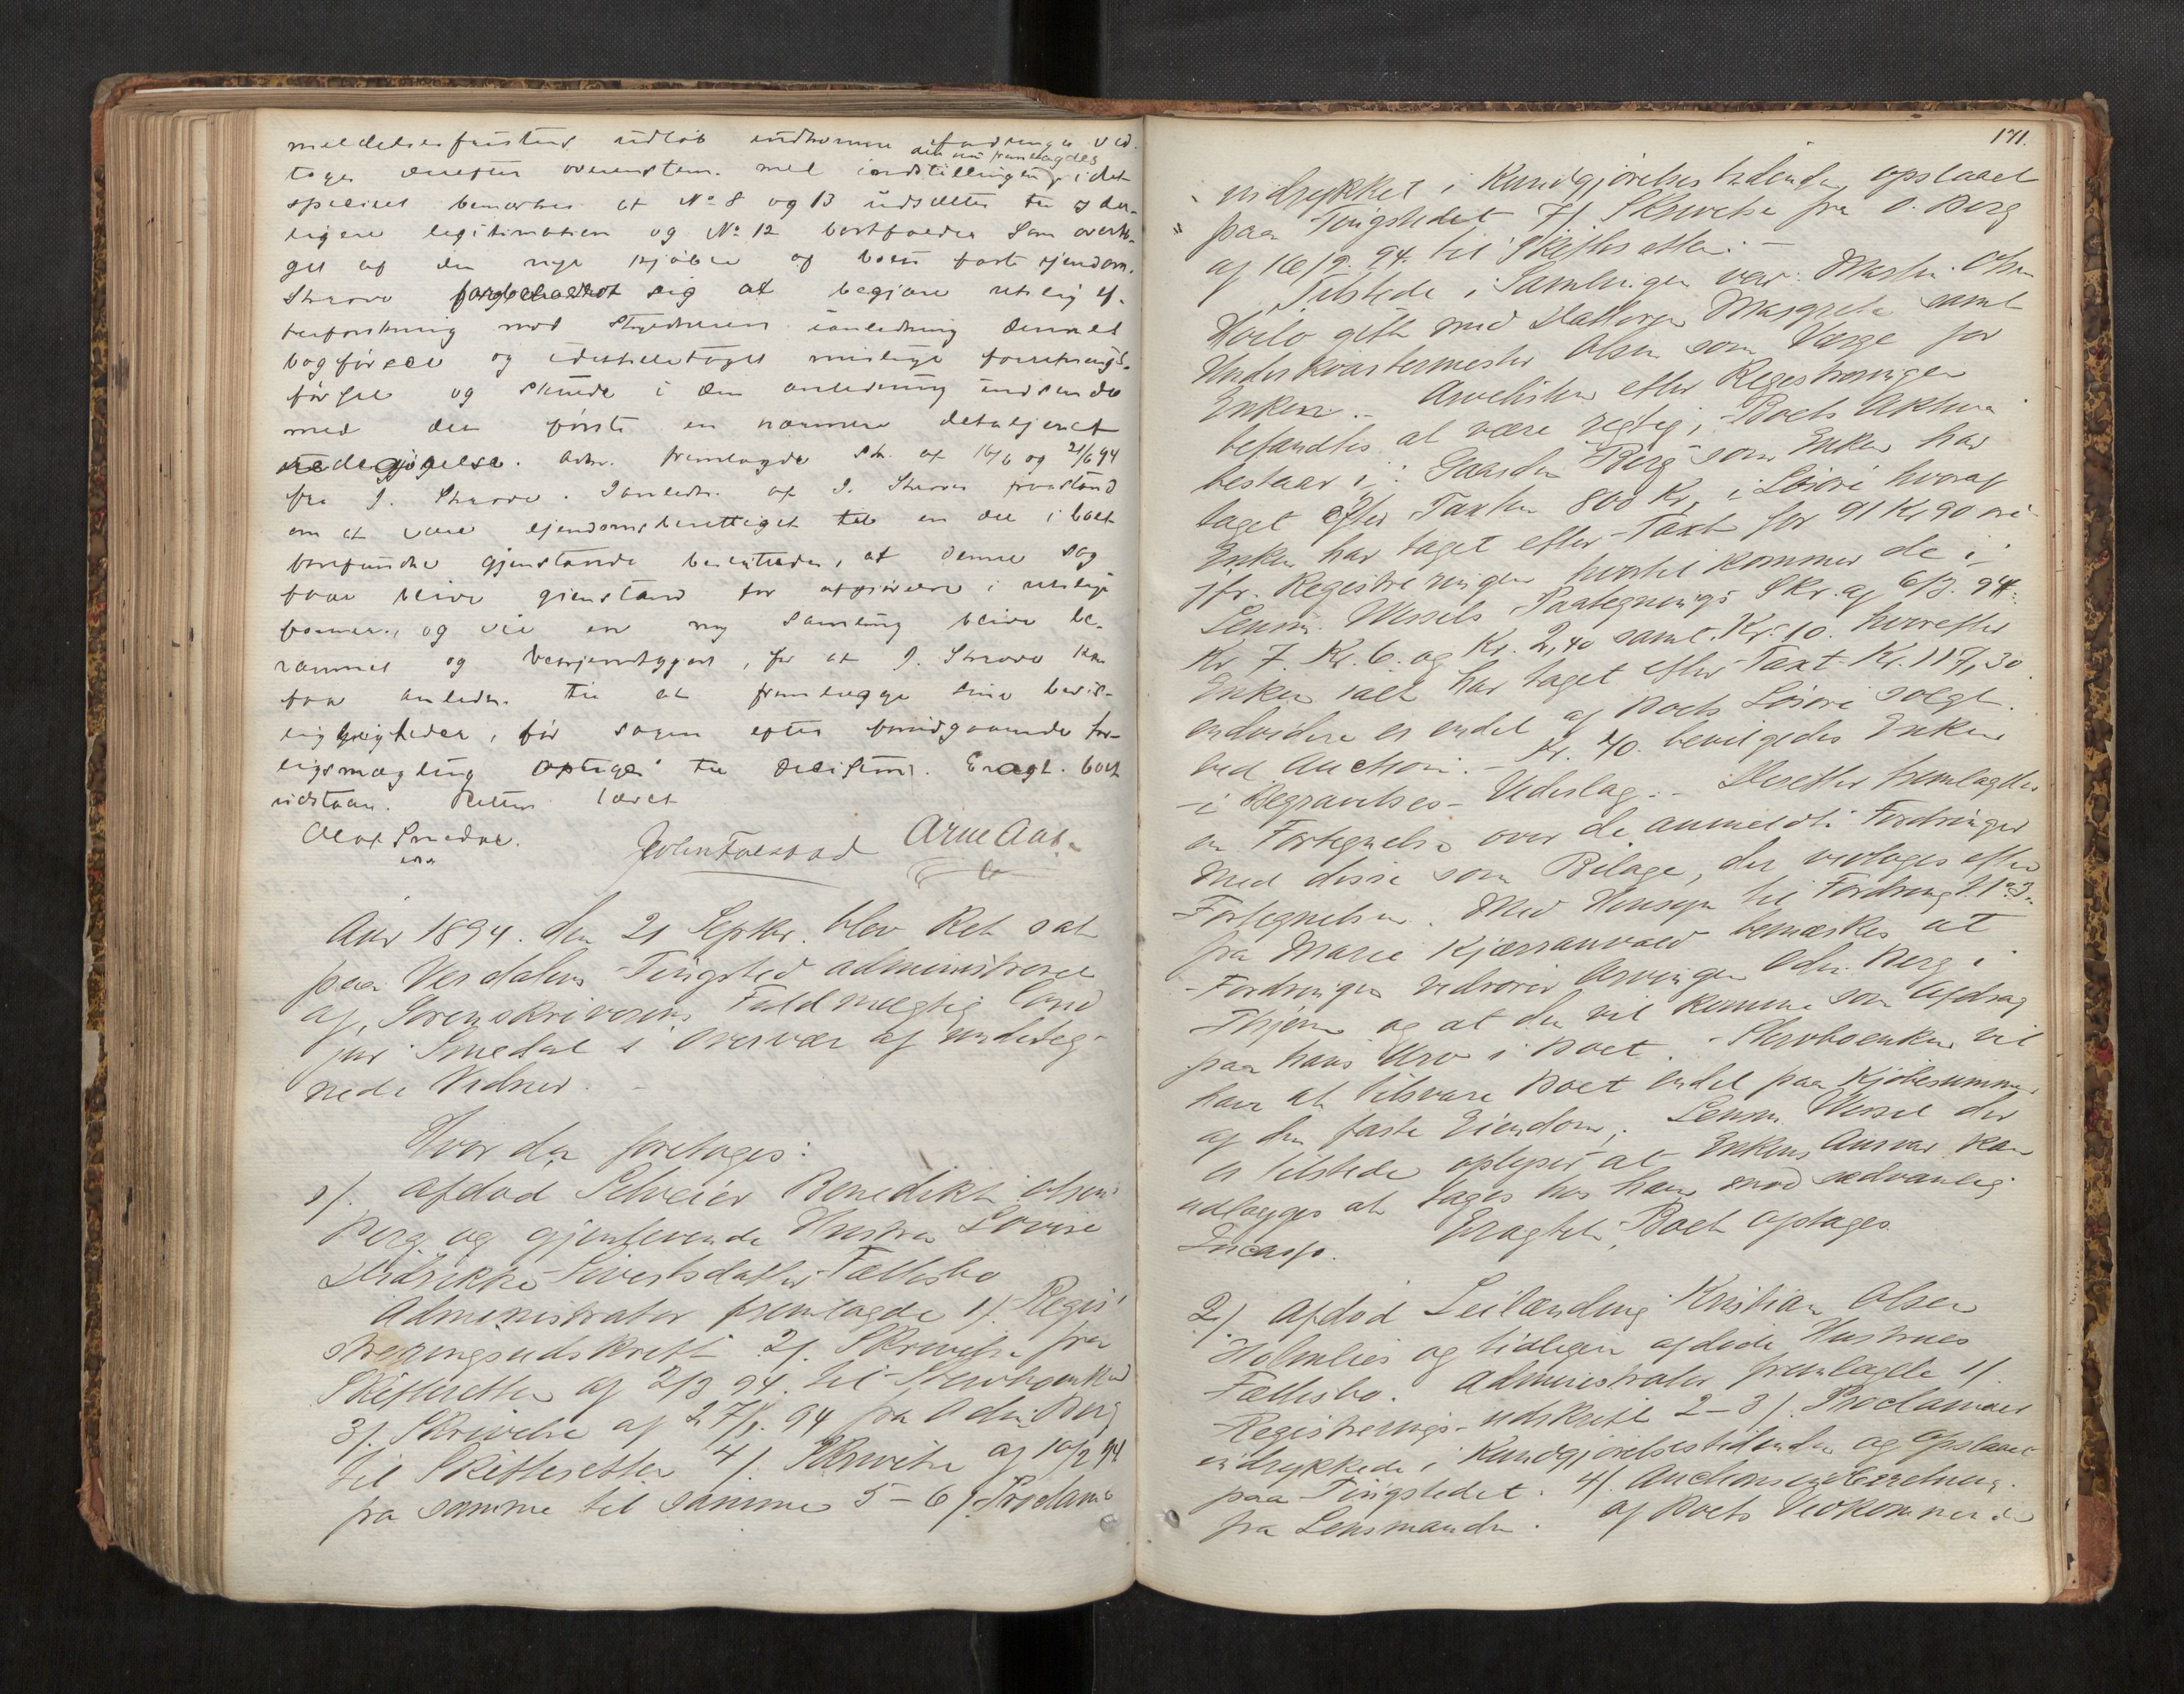 meldelsesfristens udløb indkomne fordringer ved-
den nu fremlagdes
toges derefter overenstem. med indstillingen, idet
specielt bemærkes at No 8 og 13 udsættes til yder-
ligere legitimation og No 12 bortfalder som overta-
get af den nye kjøber af boets faste ejendom.
Struve forbeholdt sig at begjære retslig ef-
terforskning mod Skyldneren i anledning dennes
bogførsel og idethele taget mislige forretnings-
førsel og skulde i den anledning indsende
med det første en nærmere detaljeret
redegjørelse. Adm. fremlagde Sk. af 16/6 og 21/6 94
fra J. Struve. I anledn. af J. Struves paastand
om at være ejendomsberettiget til en del i boet
forefundne gjenstande besluttedes, at denne sag
faar blive gjenstand for afgjørelse i retslige
former, og vil en ny samling blive be-
rammet og bekjendtgjort, for at J. Struve kan
faa anledn. til at fremlægge sine bevis-
ligheder, før sagen efter forudgaaende for-
ligsmægling optages til decision. Eragt. boet
udstaar. Retten hævet
Olaf Smedal.
John Faestad Arne Aas.
Aar 1894. den 21 Septbr. blev Ret sat
paa Verdalens Tingsted administreret
af Sorenskriverens Fuldmægtig Cand
jur Smedal i Overvær af undeteg-
nede Vidner. –
Hvor da foretoges:
1/. Afdød Selveier Benedikt Olsen
Berg og gjenlevende Hustru Lovise
Fredrikke Sivertsdatters Fællesbo
Administrator fremlagde 1/. Regi-
streringsudskrift 2/. Skrivelse fra
Skifteretten af 2/3 94. til Stervboenken
3/. Skrivelse af 27/1. 94 fra Odin Berg
til Skifteretten 4/. Skrivelse af 10/2 94
fra samme til samme 5–6/. Proclama
171.
indrykket i Kundgjørelsestidende, opslaaet
paa Tingstedet 7/. Skrivelse fra O. Berg
af 16/9. 94. til Skifteretten. –
Tilstede i Samlingen var: Martin Olsen
Hoilo gift med Datteren Margrete samt
Underkvartermester Olsen som Værge for
Enken. – Arvelisten efter Registreringen
befandtes at være rigtig; Boets Aktiva
bestaar i: Gaarden Berg som Enken har
taget efter Taxten 800 Kr, i Løsøre hvoraf
Enken har taget efter Taxt for 91 Kr 90 øre
jfr. Registreringen hvortil kommer de i
Lensm. Wessels Paategnings Skr. af 6/3. 94:
Kr. 7. Kr. 6. og Kr. 2,40 samt Kr. 10. hvorefter
Enken ialt har taget efter Taxt Kr. 117,30.
endvidere er endel af Boets Løsøre solgt
ved Auction. – Kr. 40. bevilgedes Enken
i Begravelses-Vederlag. – Derefter fremlagdes
en Fortegnelse over de anmeldte Fordringer
med disse som Bilage, der vedtoges efter
Fortegnelsen. Med Hensyn til Fordring No 3
fra Marie Kjærranvold bemærkes at
Fordringen vedrører Arvingen Odin Berg i
Thjem og at den vil komme som Afdrag
paa hans Arv i Boet. – Stervboenken vil
have at tilsvare Boet endel paa Kjøbesummen
af den faste Eiendom; Lensm. Wessel der
er tilstede oplyser at Enkens Ansvar kan
udlægges at tages hos ham mod sædvanlig
Incasso. Eragtet: Boet optages
2/. Afdød Leilænding Kristian Olsen
Holmlies og tidligere afdøde Hustrues
Fællesbo. Administrator fremlagde 1/.
Registrerings-udskrift 2–3/. Proclamaer
indrykkede i Kundgjørelsestidende og opslaaet
paa Tingstedet. 4/. Auctionsindberetning
fra Lensmanden. af Boets Vedkommende